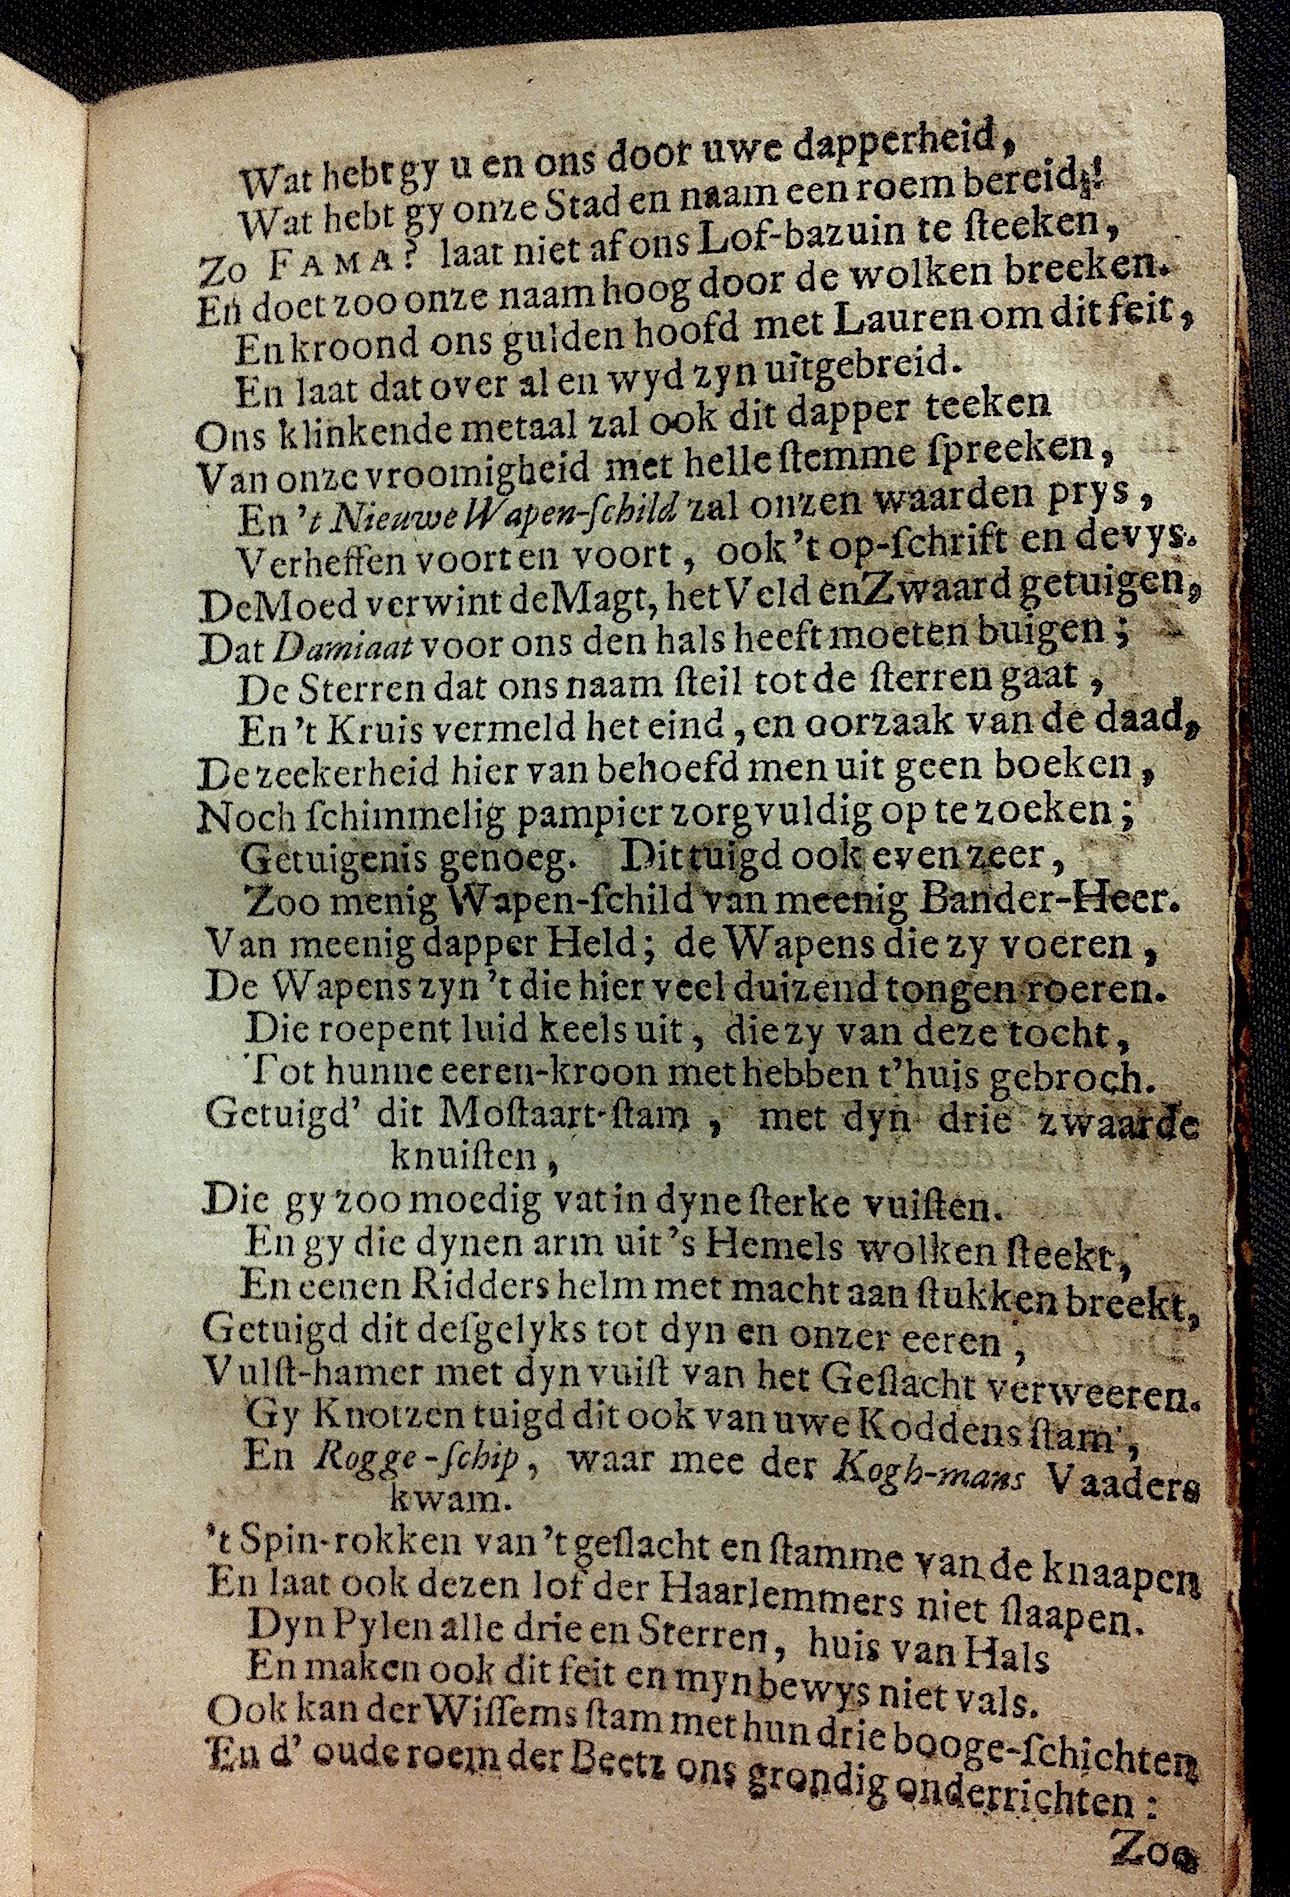 Wat hebt gy u en ons door uwe dapperheid,
Wat hebt gy onze Stad en naam een roem bereid!
Zo FAMA? laat niet af ons Lof-bazuin te ſteeken,
En doet zoo onze naam hoog door de wolken breeken.
En kroond ons gulden hoofd met Lauren om dit feit,
En laat dat over al en wyd zyn uitgebreid.
Ons klinkende metaal zal ook dit dapper teeken
Van onze vroomigheid met helle ſtemme ſpreeken,
En 't Nieuwe Wapen-ſchild zal onzen waarden prys,
Verheffen voort en voort, ook 't op-ſchrift en devys.
De Moed verwint de Magt, het Veld en Zwaard getuigen,
Dat Damiaat voor ons den hals heeft moeten buigen;
De Sterren dat ons naam ſteil tot de ſterren gaat,
En 't Kruis vermeld het eind, en oorzaak van de daad,
De zeekerheid hier van behoefd men uit geen boeken,
Noch ſchimmelig pampier zorgvuldig op te zoeken;
Getuigenis genoeg. Dit tuigd ook even zeer,
Zoo menig Wapen-ſchild van meenig Bander-Heer.
Van meenig dapper Held; de Wapens die zy voeren,
De Wapens zyn 't die hier veel duizend tongen roeren.
Die roepent luid keels uit, die zy van deze tocht,
Tot hunne eeren-kroon met hebben t'huis gebroch.
Getuigd' dit Moſtaart-ſtam, met dyn drie zwaarde
knuiſten,
Die gy zoo moedig vat in dyne ſterke vuiſten.
En gy die dynen arm uit 's Hemels wolken ſteekt,
En eenen Ridders helm met macht aan ſtukken breekt,
Getuigd dit deſgelyks tot dyn en onzer eeren,
Vulſt-hamer met dyn vuiſt van het Geſlacht verweeren.
Gy Knotzen tuigd dit ook van uwe Koddens ſtam,
En Rogge-ſchip, waar mee der Kogh-mans Vaaders
kwam.
't Spin-rokken van 't geſlacht en ſtamme van de knaapen
En laat ook dezen lof der Haarlemmers niet ſlaapen.
Dyn Pylen alle drie en Sterren, huis van Hals
En maken ook dit feit en myn bewys niet vals.
Ook kan der Wiſſems ſtam met hun drie booge-ſchichten
En d' oude roem der Beetz ons grondig onderrichten:
Zoo